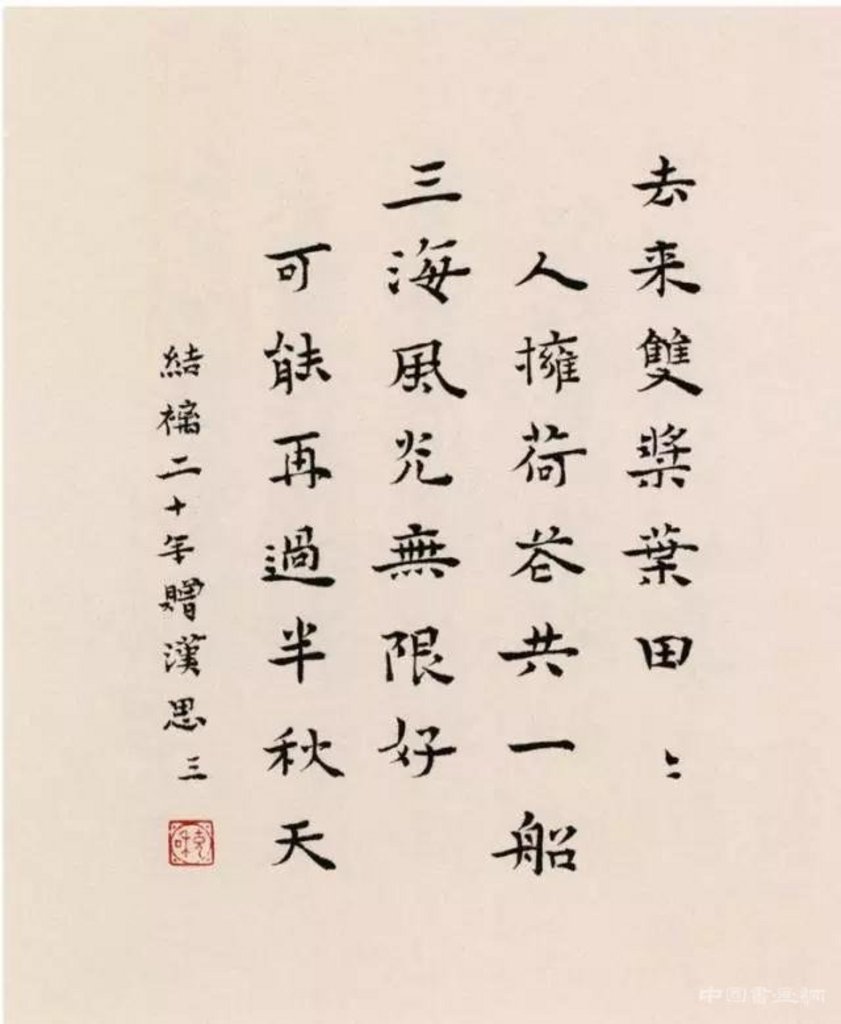 去来雙槳葉田〻
人擁荷花共一船
三海風光無限好
可能再過半秋天
結褵二十年贈漢思 三
中国書畫網